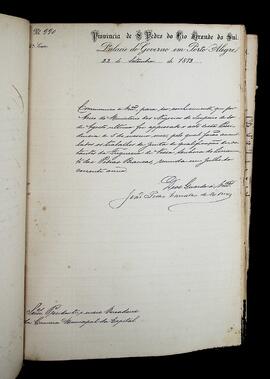 Nº 990
Provincia de S. Pedro do Rio Grande do Sul.
Palacio do Governo em Porto Alegre,
22 de setembro de 1873
Communico a Vmces para seu conhecimento que por
Aviso do Ministerio dos Negocios do Imperio de
de Agosto ultimo foi approvado o acto desta Presi
dencia de 5 do mesmo mez, pelo qual foram
lados os trabalhos da junta de qualificação de vo
tantes da Freguezia de Nossa Senhora do Livramen
to das Pedras Brancas, reunida em Julho do
corrente anno.
Deos Guarde a Vmces
João Pedro Carvalho de Moraes
Snrs. Presidente e mais Vereadores
da Camara Municipal da Capital.